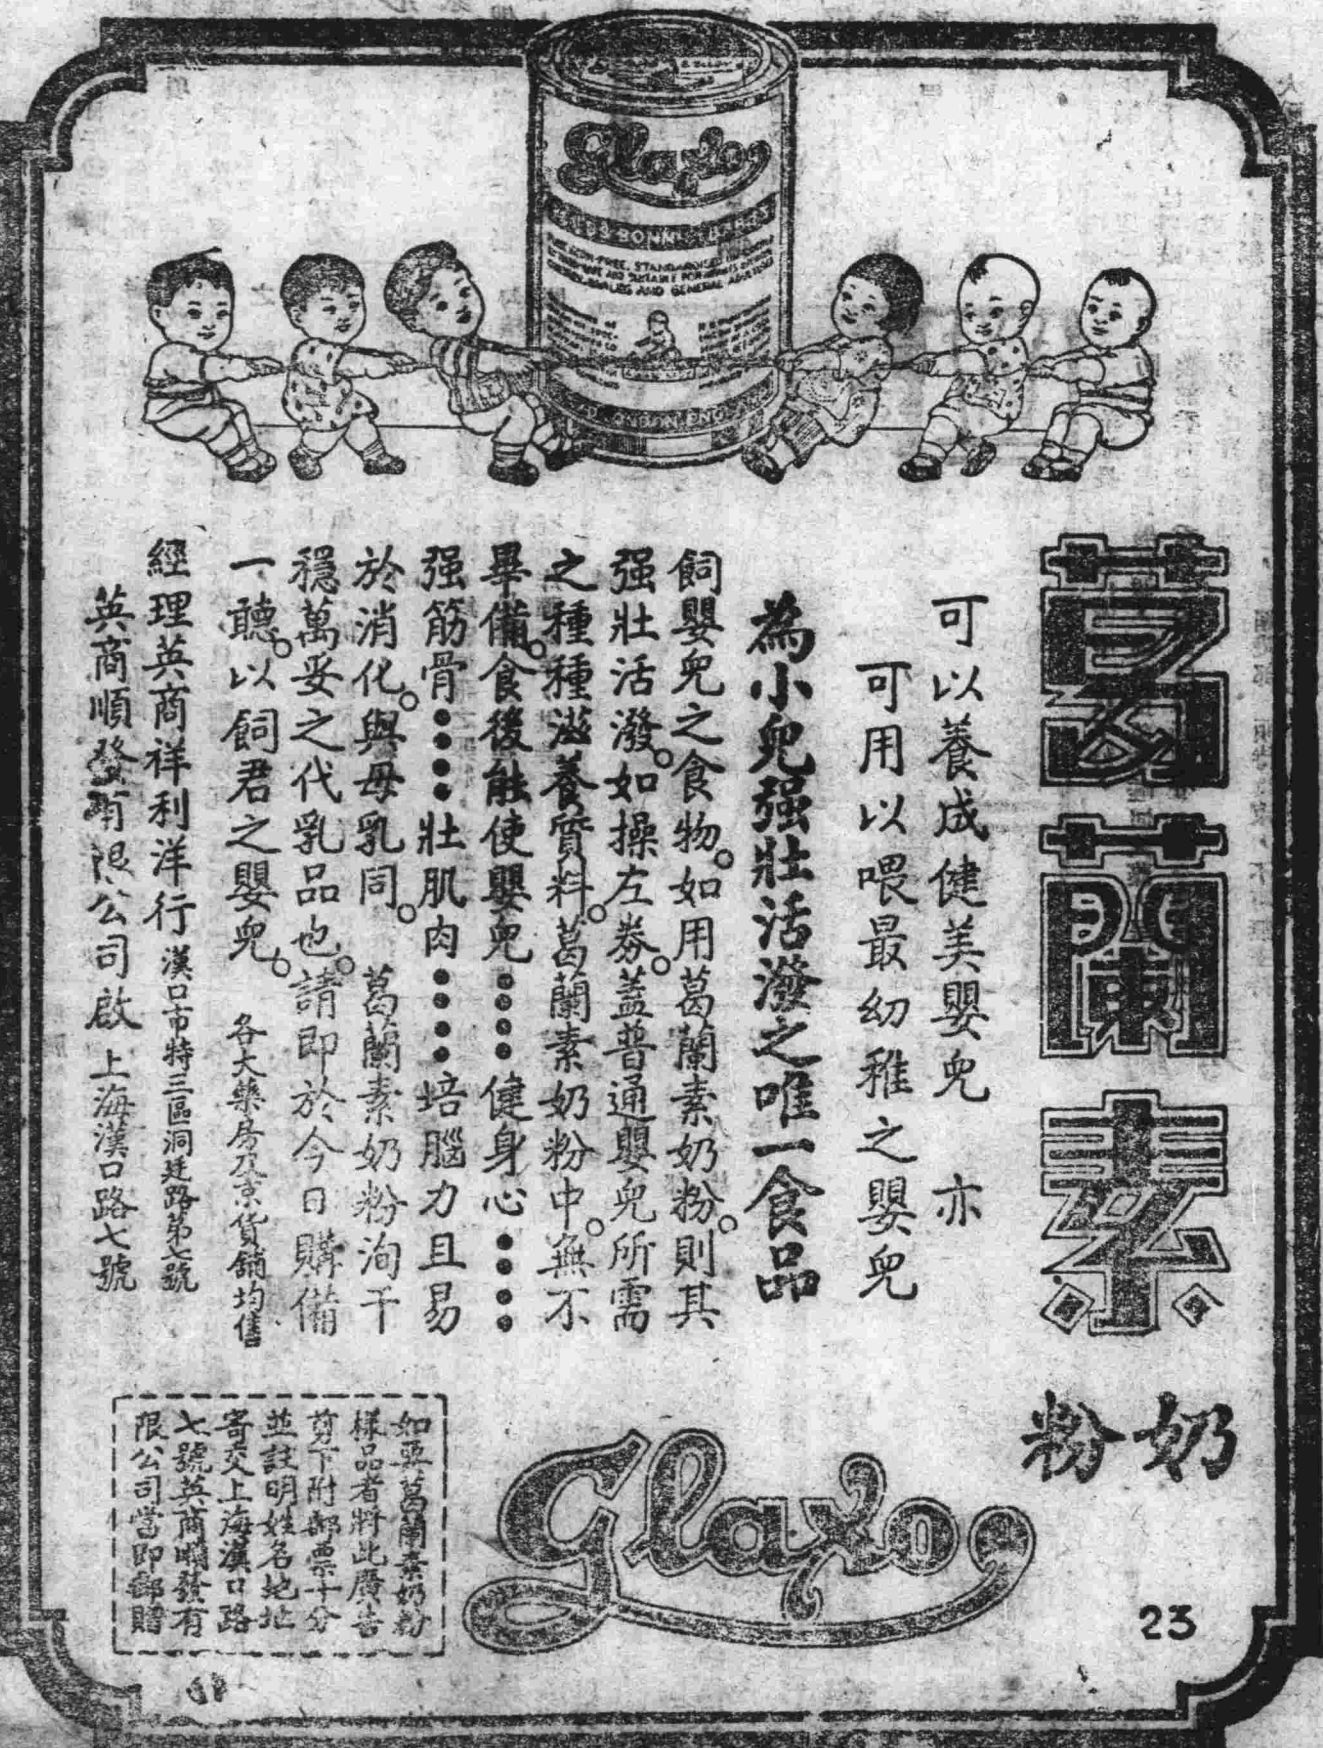 Glaxo
葛蘭素
奶粉
可以養成健美嬰兒　亦
可用以喂最幼稚之嬰兒
為小兒强壯活潑之唯一食品
飼嬰兒之食物。如用葛蘭素奶粉。則其
强壯活潑。如操左券。蓋普通嬰兒所需
之種種滋養質料。葛蘭素奶粉中。無不
畢備。食後能使嬰兒••••健身心••••
强筋骨••••壯肌肉••••培腦力且易
於消化。與母乳同。　葛蘭素奶粉洵千
穩萬妥之代乳品也。請即於今日購備
一聽。以飼君之嬰兒。　各大藥房及京貨舖均售
經理英商祥利洋行　漢口市特三區洞廷路第七號
英商順發有限公司啟　上海漢口路七號
Glaxo
如要葛蘭素奶粉
樣品者將此廣告
剪下附郵票十分
並註明姓名地址
寄交上海漢口路
七號英商順發有
限公司當即郵贈
23